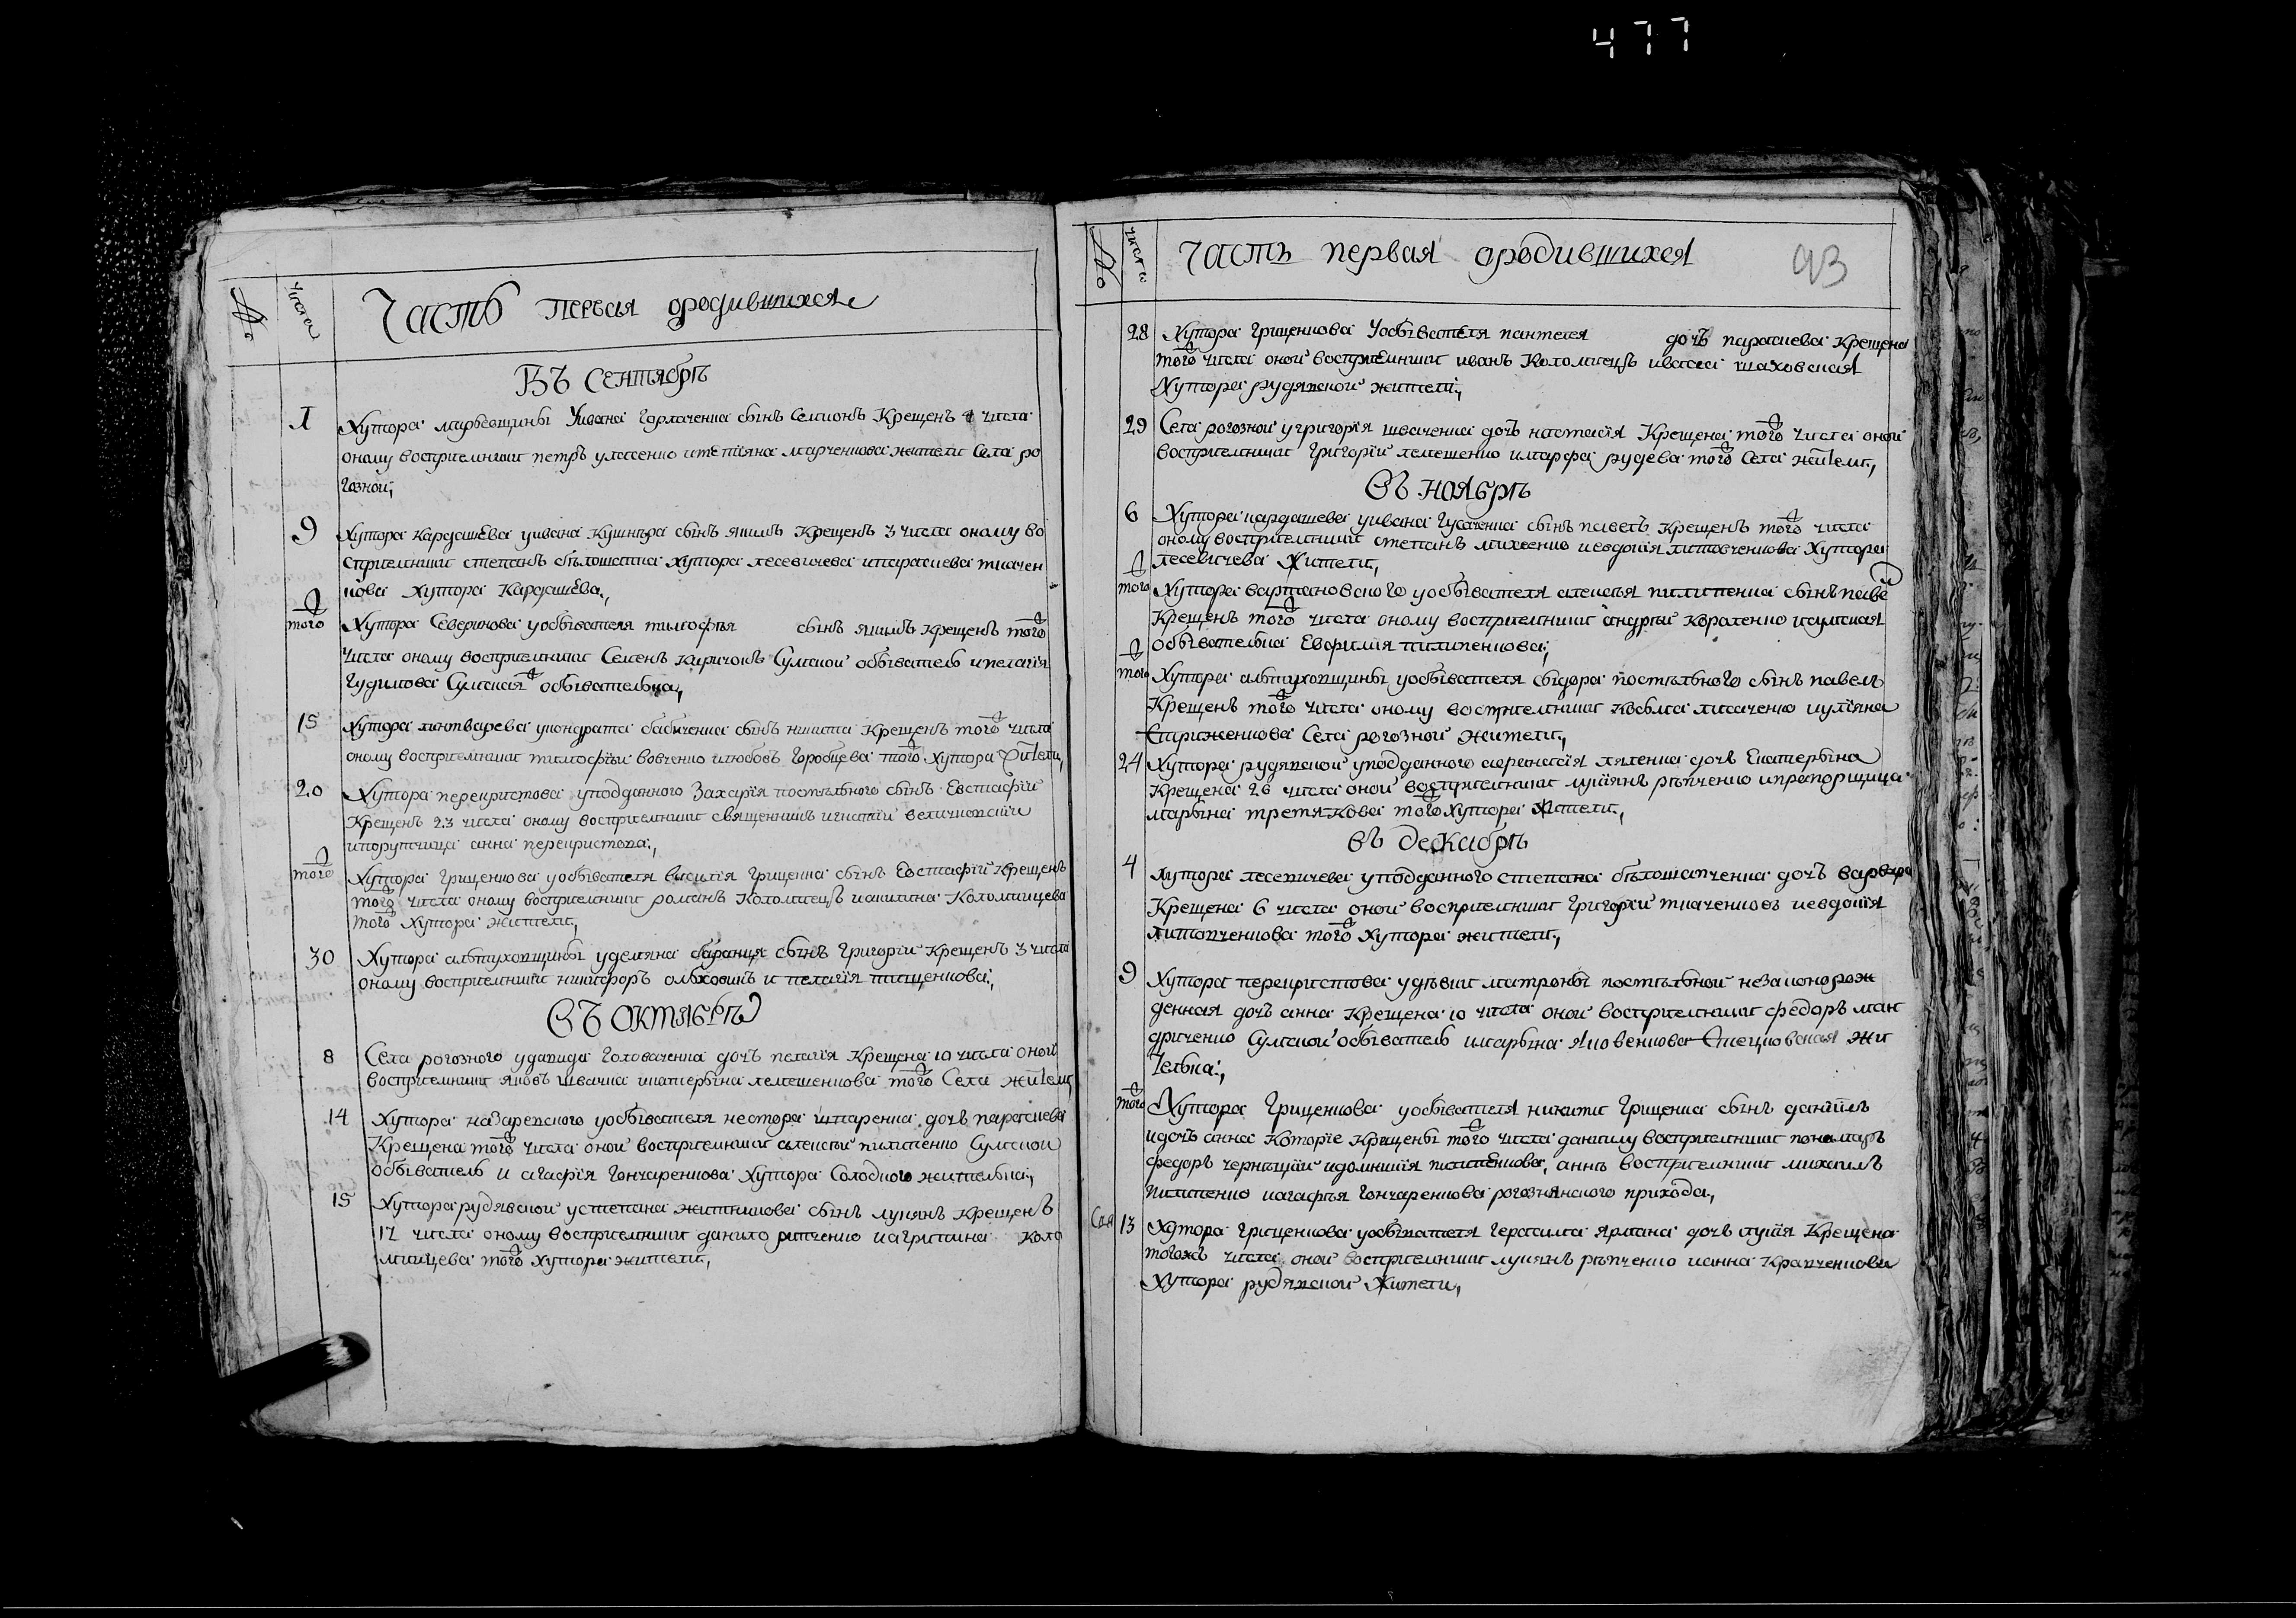 477
№
числа
Часть первая ородившихся
Въ Сентябрѣ
1 Хутора марѣевщины Уивана Горлаченка сынъ Семионъ Крещенъ 4 числа
оному восприемники петръ уласенко итетіяна марченкова жители Села ро
гозной,
9 Хутора Кардашѣва уивана Кушнѣра сынъ якимъ Крещенъ 3 числа оному во
сприемники степанъ бѣлошапка хутора лесевичева ипараскева ткачен
кова Хутора Кардашѣва,
того Хутора Северинова уобывателя тимофѣя сынъ якимъ крещенъ того
числа оному восприемники Семенъ Киричокъ Сумской обыватель ипелагія
Гудимова Сумская обывателька,
15 Хутора лютварева укондрата бабиченка сынъ никита Крещенъ того числа
оному восприемники тимофѣй вовченко илюбовъ Горобцева того Хутора жители,
20 Хутора перекристова уподданного Захарія постѣльного сынъ Евстафій
Крещенъ 23 числа оному восприемники священникъ игнатій величковскій
ипорутчица анна перекристова,
того Хутора Грищенкова уобывателя василія Грищенка сынъ Евстафій Крещенъ
того числа оному восприемники романъ Коломіецъ иакилина Коломийцева
того Хутора жители,
30 Хутора алтуховщины удемяна баранця сынъ Григорій Крещенъ 3 числа
оному восприемники никифоръ ольховикъ и пелагія тищенкова,
Въ Октябрѣ
8 Села рогозного удавида Головаченка дочъ пелагія Крещена 10 числа оной
восприемники яковъ швачка икатерына лемешенкова того Села жители
14 Хутора назаревского уобывателя нестора шпаренка дочъ параскева
Крещена того числа оной восприемники алексѣй пилипенко Сумской
обыватель и агафія Гончаренкова Хутора Солодкого жителька,
15 Хутора рудявской устепана житникова сынъ лукянъ Крещенъ
17 числа оному восприемники данило рипченко иагрипина Коло
мийцева того Хутора жители,
№
числа
Часть первая ородившихся
93
28 Хутора Грищенкова Уобывателя пантелея дочъ параскева Крещена
того числа оной восприемники иванъ Коломиецъ иваса шаховская
Хутора рудявской жители,
29 Села рогозной угригорія шваченка дочъ настасія Крещена того числа оной
восприемники Григорій лемешенко имарфа рудева того Села жители,
Въ Ноябрѣ
6 Хутора кардашева уивана Гусаченка сынъ павелъ Крещенъ того числа
оному восприемники степанъ михеенко иевдокія литовченкова Хутора
лесевичева Жители,
того Хутора варпановского уобывателя алексѣя пилипенка сынъ павел
Крещенъ того числа оному восприемники андрей Короленко исумская
обывателька Евфимія пилипенкова,
того Хутора алтуховщины уобывателя сыдора постѣльного сынъ павелъ
Крещенъ того числа оному восприемники Косьма лисаченко иуліяна
Стриженкова Села рогозной жители,
24 Хутора рудявской уподданного афанасія ляленка дочъ Екатерына
Крещена 26 числа оной восприемники лукіянъ рѣпченко ипрапорщица
марына третякова того Хутора жители,
въ декабрѣ
4 хутора лесевичева уподданного степана бѣлошапченка дочъ варвара
Крещена 6 числа оной восприемники Григорій ткаченковъ иевдокія
литовченкова того Хутора жители,
9 Хутора перекристова удѣвки матроны постѣльной незаконорож
денная дочъ анна Крещена 10 числа оной восприемники федоръ ман
дриченко Сумской обыватель имарына яковенкова Стецковская жи
телька,
того Хутора Грищенкова уобывателя никити Грищенка сынъ даніилъ
идочъ анна Которіе Крещены того числа даниилу восприемники пономаръ
федоръ чернѣцкій идомникія пилипенкова, аннѣ восприемники михаилъ
пилипенко иагафѣя Гончаренкова рогознянского прихода,
13 Хутора Грищенкова уобывателя Герасима Ярмака дочъ лукія Крещена
тогожъ числа оной восприемники лукянъ рѣпченко ианна Кравченкова
Хутора рудявской Жители,